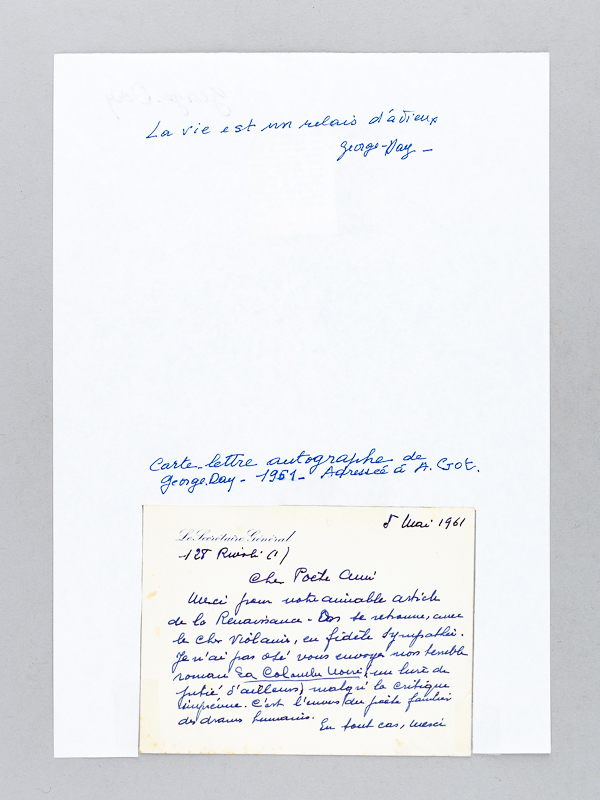 La vie est un relais d'adieux
George-Day —
Carte-lettre autographe de
George-Day - 1961 - Adressée à A. Got.
5 Mai 1961
Le Secrétaire Général
128 Rivoli (1)
Cher Poète Ami
Merci pour votre aimable article
de la Renaissance - On se retrouve, avec
le cher Violanis, en fidèle sympathie.
Je n'ai pas osé vous envoyer mon terrible
roman La Colombe Noire (un livre de
pitié d'ailleurs) malgré la critique
. C'est l'envers du poète familier
des drames humains.
En tout cas, merci